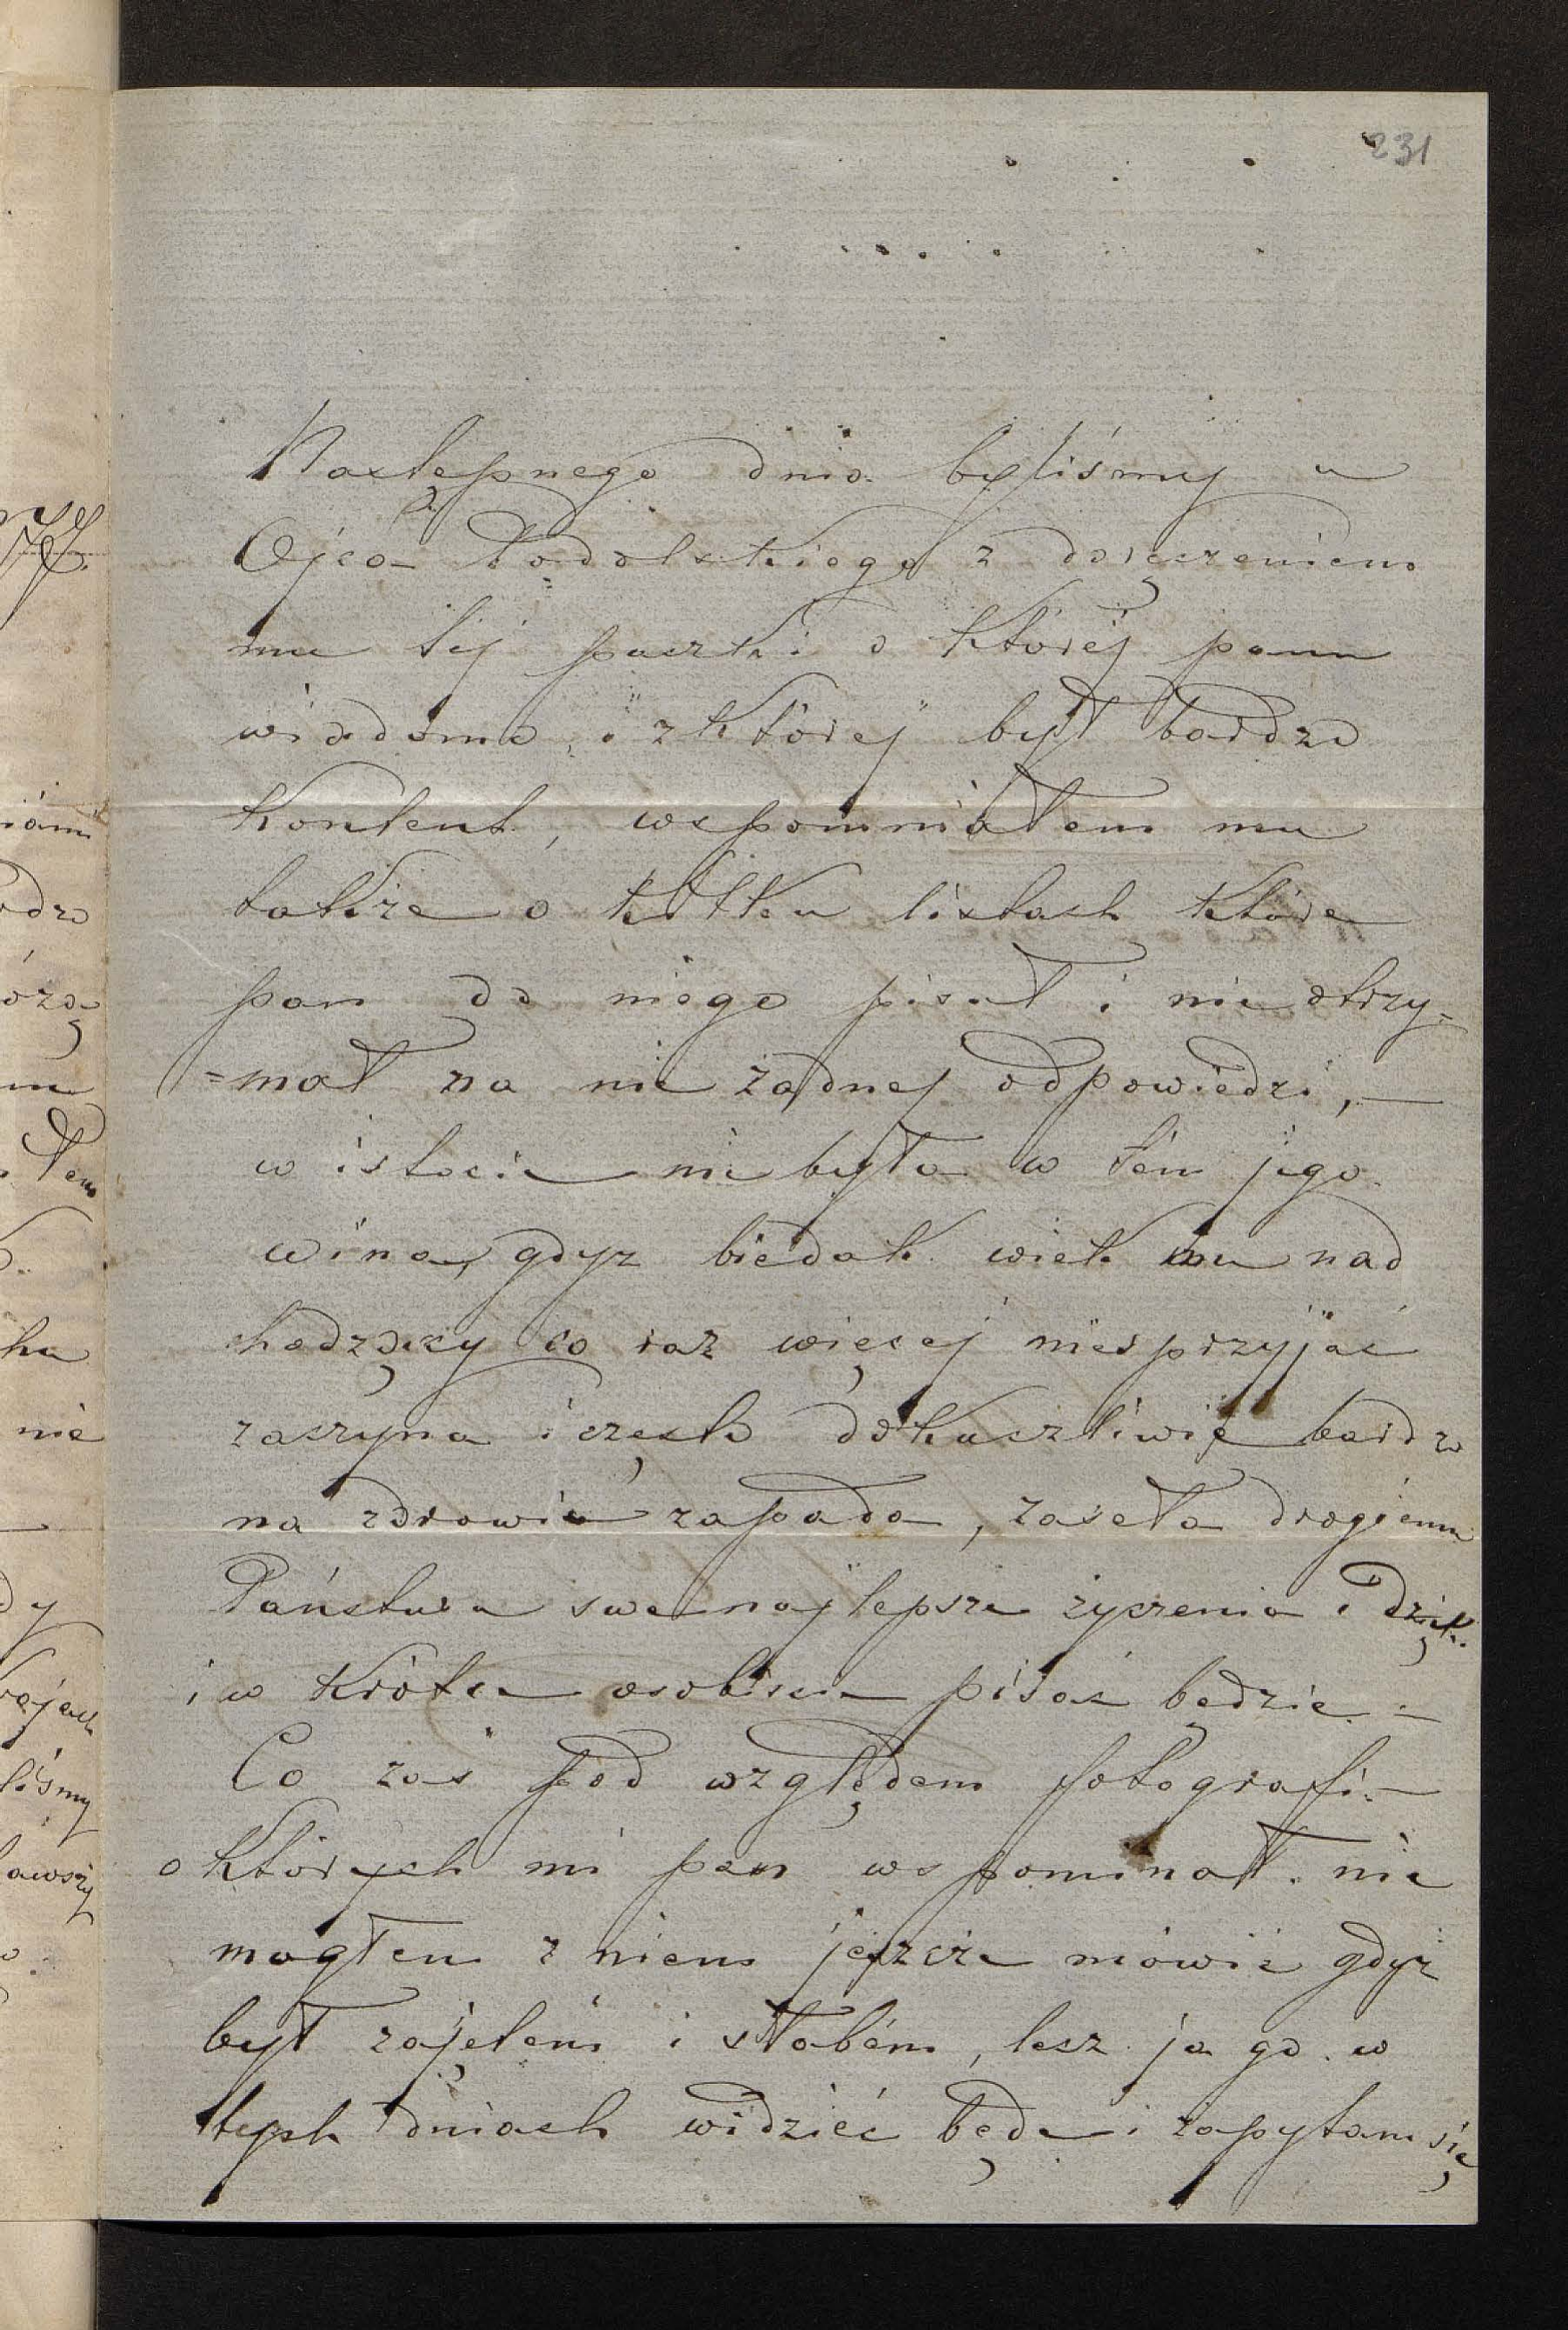 231
Następnego dnia byliśmy u
Ojca Podolskiego z doręczeniem
mu téj paczki o któréj panu
wiadomo, i z której był bardzo
kontent, wspomniałem mu
także o kilku listach które
pan do niego pisał i nie otrzy=
=mał na nie żadnej odpowiedzi, —
w istocie nie była w tém jego
wina, gdyz biedak wiek mu nad
chodzący co raz więcej niesprzyjać
zaczyna i często dokuczliwie bardzo
na zdrowiu zapada, zaseła drogiemu
Państwu swe najlepsze zyczenia i dzięk.
i w krótce osobiscie pisać będzie. —
Co zaś pod względem fotografi —
o których mi pan wspominał. nie
mogłem z niem jeszcze mówić gdyż
był zajętém i słabém, lecz ja go w
tych dniach widzieć będe i zapytam się